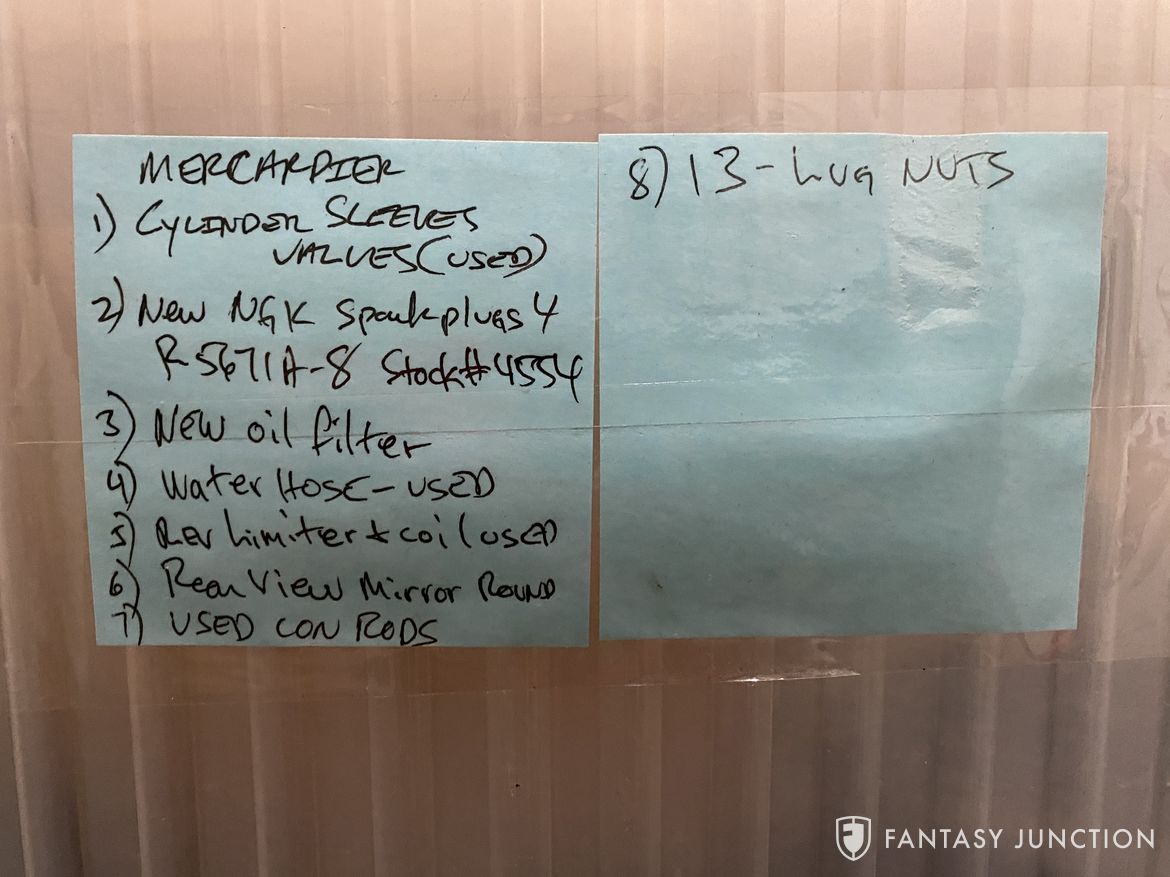 MERCARDIER
1) CYLINDER SLEEVES
VALVES (USED)
2) New NGK Sparkplugs 4
R5671A-8 Stock# 4554
3) NEW oil filter
4) Water HOSE - USED
5) Rev Limiter + coil USED
6) Rear View Mirror ROUND
7) USED CON RODS
8) 13 - Lug NUTS
FANTASY JUNCTION